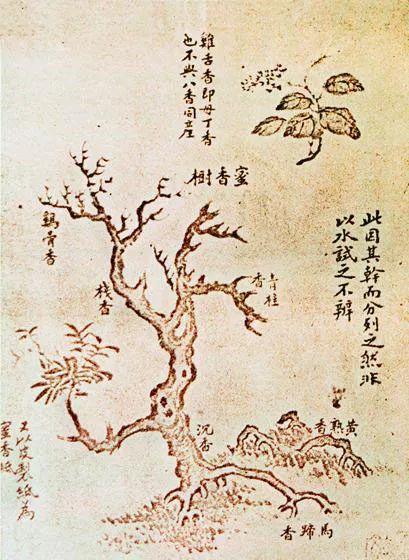 雞舌香即母丁香
也不與八香同
蜜香樹
此因其幹而分列之然非
以水試之不辨
鷄骨香
棧香
青桂
香
沉香
黃熟香
馬蹄香
又以皮製紙為
蜜香紙